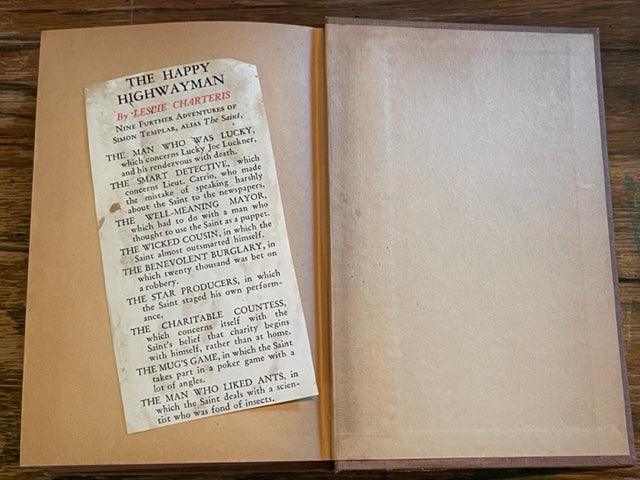 THE HAPPY
HIGHWAYMAN
By LESLIE CHARTERIS
NINE FURTHER ADVENTURES OF
SIMON TEMPLAR, ALIAS The Saint,
THE MAN WHO WAS LUCKY,
which concerns Lucky Joe Luckner,
and his rendezvous with death.
THE SMART DETECTIVE, which
concerns Lieut. Carrio, who made
the mistake of speaking harshly
about the Saint to the newspapers.
THE WELL-MEANING MAYOR,
which had to do with a man who
thought to use the Saint as a puppet.
THE WICKED COUSIN, in which the
Saint almost outsmarted himself.
THE BENEVOLENT BURGLARY, in
which twenty thousand was bet on
a robbery.
THE STAR PRODUCERS, in which
the Saint staged his own perform-
ance.
THE CHARITABLE COUNTESS,
which concerns itself with the
Saint's belief that charity begins
with himself, rather than at home.
THE MUG'S GAME, in which the Saint
takes part in a poker game with a
lot of angles.
THE MAN WHO LIKED ANTS, in
which the Saint deals with a scien-
tist who was fond of insects.